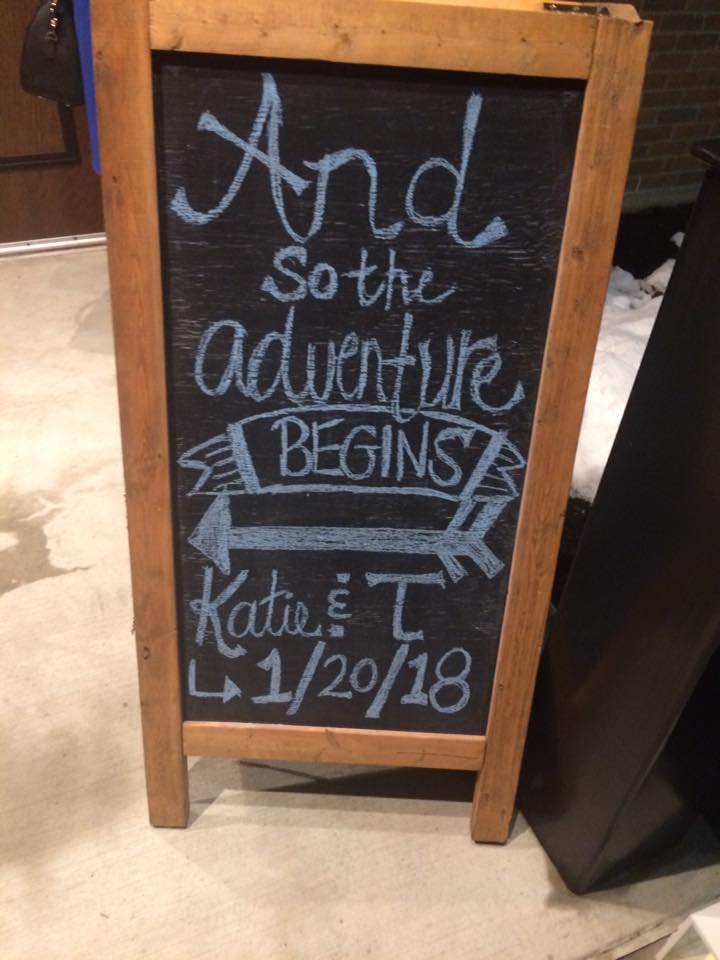 And
so the
adventure
BEGINS
Katie & T
1/20/18